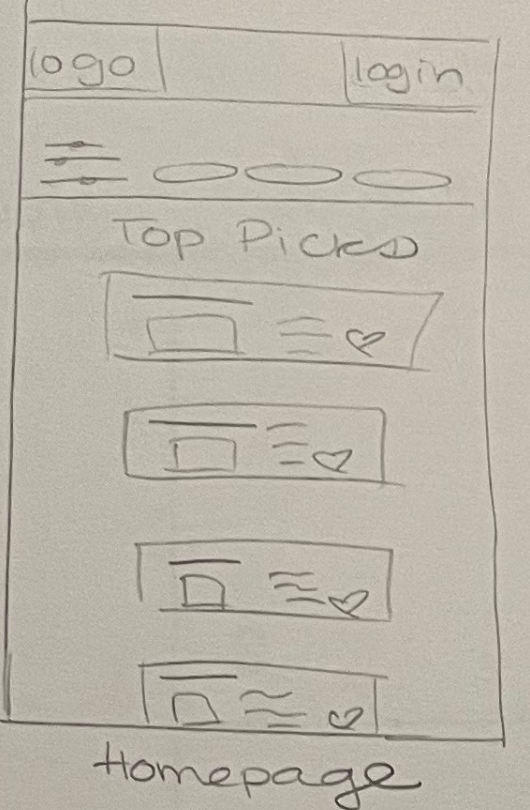 logo
login
Top Picks
Homepage